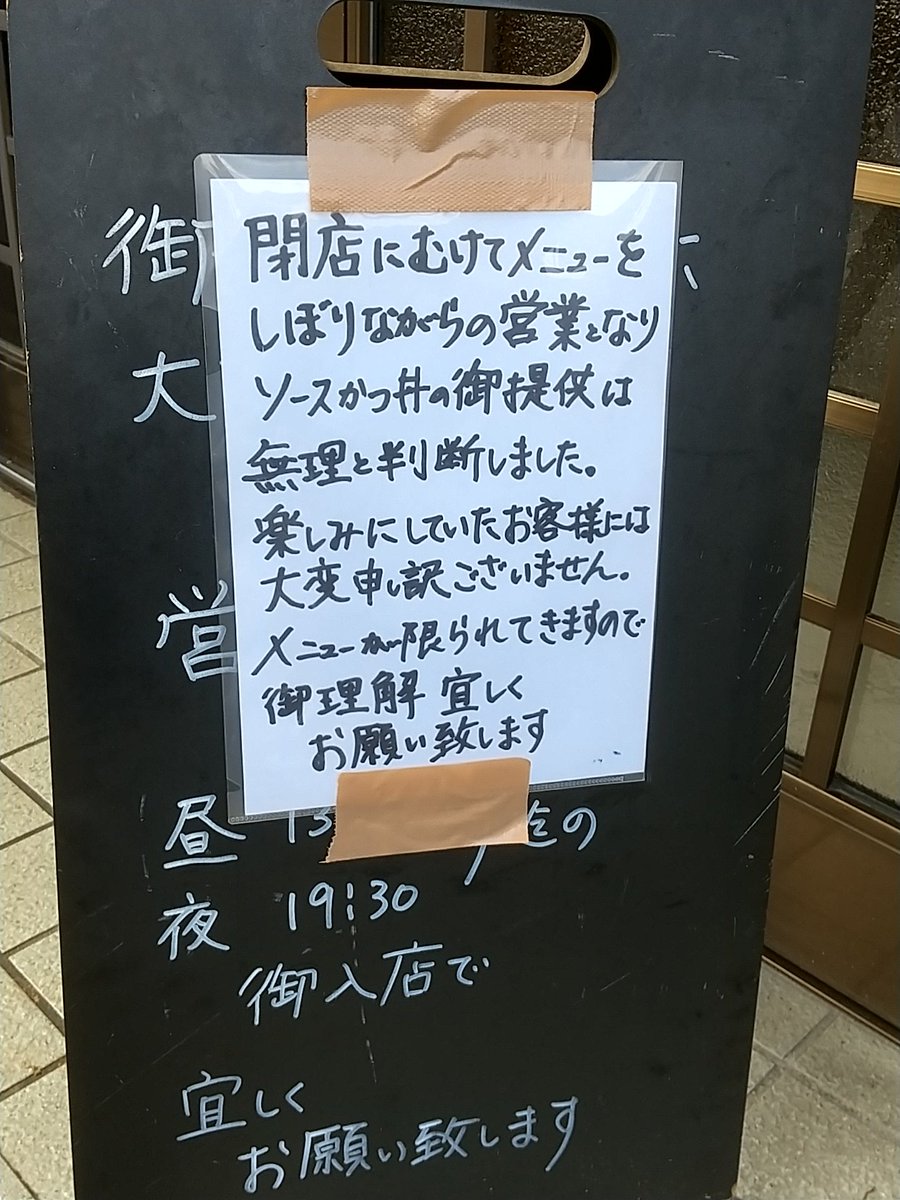 御
大
閉店にむけてメニューを
しぼりながらの営業となり
ソースかつ丼の御提供は
無理と判断しました。
楽しみにしていたお客様には
大変申し訳ございません。
メニューが限られてきますので
御理解 宜しく
お願い致します
営
昼 13 迄の
夜 19:30
御入店で
宜しく
お願い致します